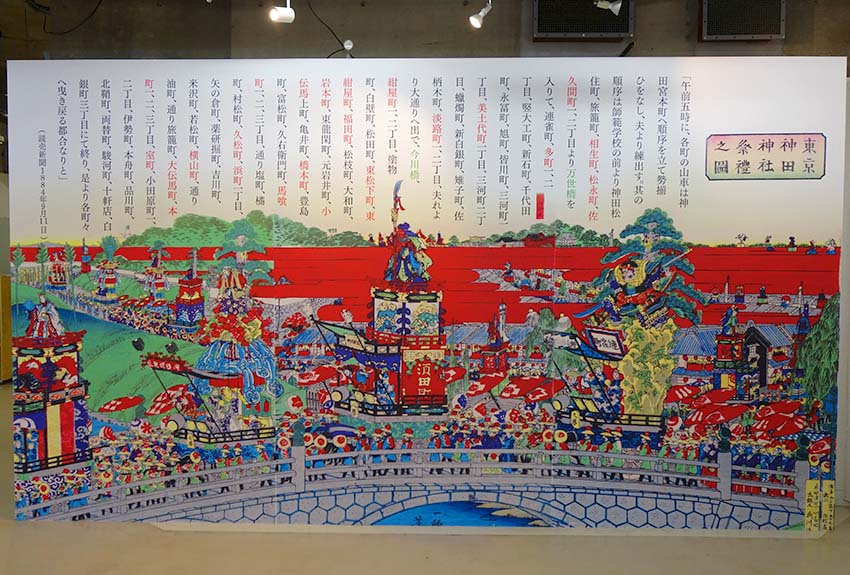 東亰
神田
神社
祭禮
之圖
「午前五時に、各町の山車は神
田宮本町へ順序を立て勢揃
ひをなし、夫より練出す。其の
順序は師範学校の前より神田松
住町、旅籠町、相生町、松永町、佐
久間町一、二丁目より万世橋を
入りて、連雀町、多町一、二
丁目、竪大工町、新石町、千代田
町、永富町、旭町、皆川町、三河町、
丁目、美土代町一丁目、三河町二丁
目、蝋燭町、新白銀町、雉子町、佐
柄木町、淡路町一、二丁目、夫れよ
り大通りへ出で、今川橋、
紺屋町一、二丁目、塗物
町、白壁町、松田町、東松下町、東
紺屋町、福田町、松枝町、大和町、
岩本町、東龍閑町、元岩井町、小
伝馬上町、亀井町、橋本町、豊島
町、富松町、久右衛門町、馬喰
町一、二、三丁目、通り塩町、橘
町、村松町、久松町、浜町一丁目、
矢の倉町、薬研掘町、吉川町、
米沢町、若松町、横山町、通り
油町、通り旅籠町、大伝馬町、本
町一、二、三丁目、室町、小田原町一、
二丁目、伊勢町、本舟町、品川町、
北鞘町、両替町、駿河町、十軒店、白
銀町三丁目にて終り、是より各町々
へ曳き戻る都合なりと」
(読売新聞1884年9月11日)
須田町